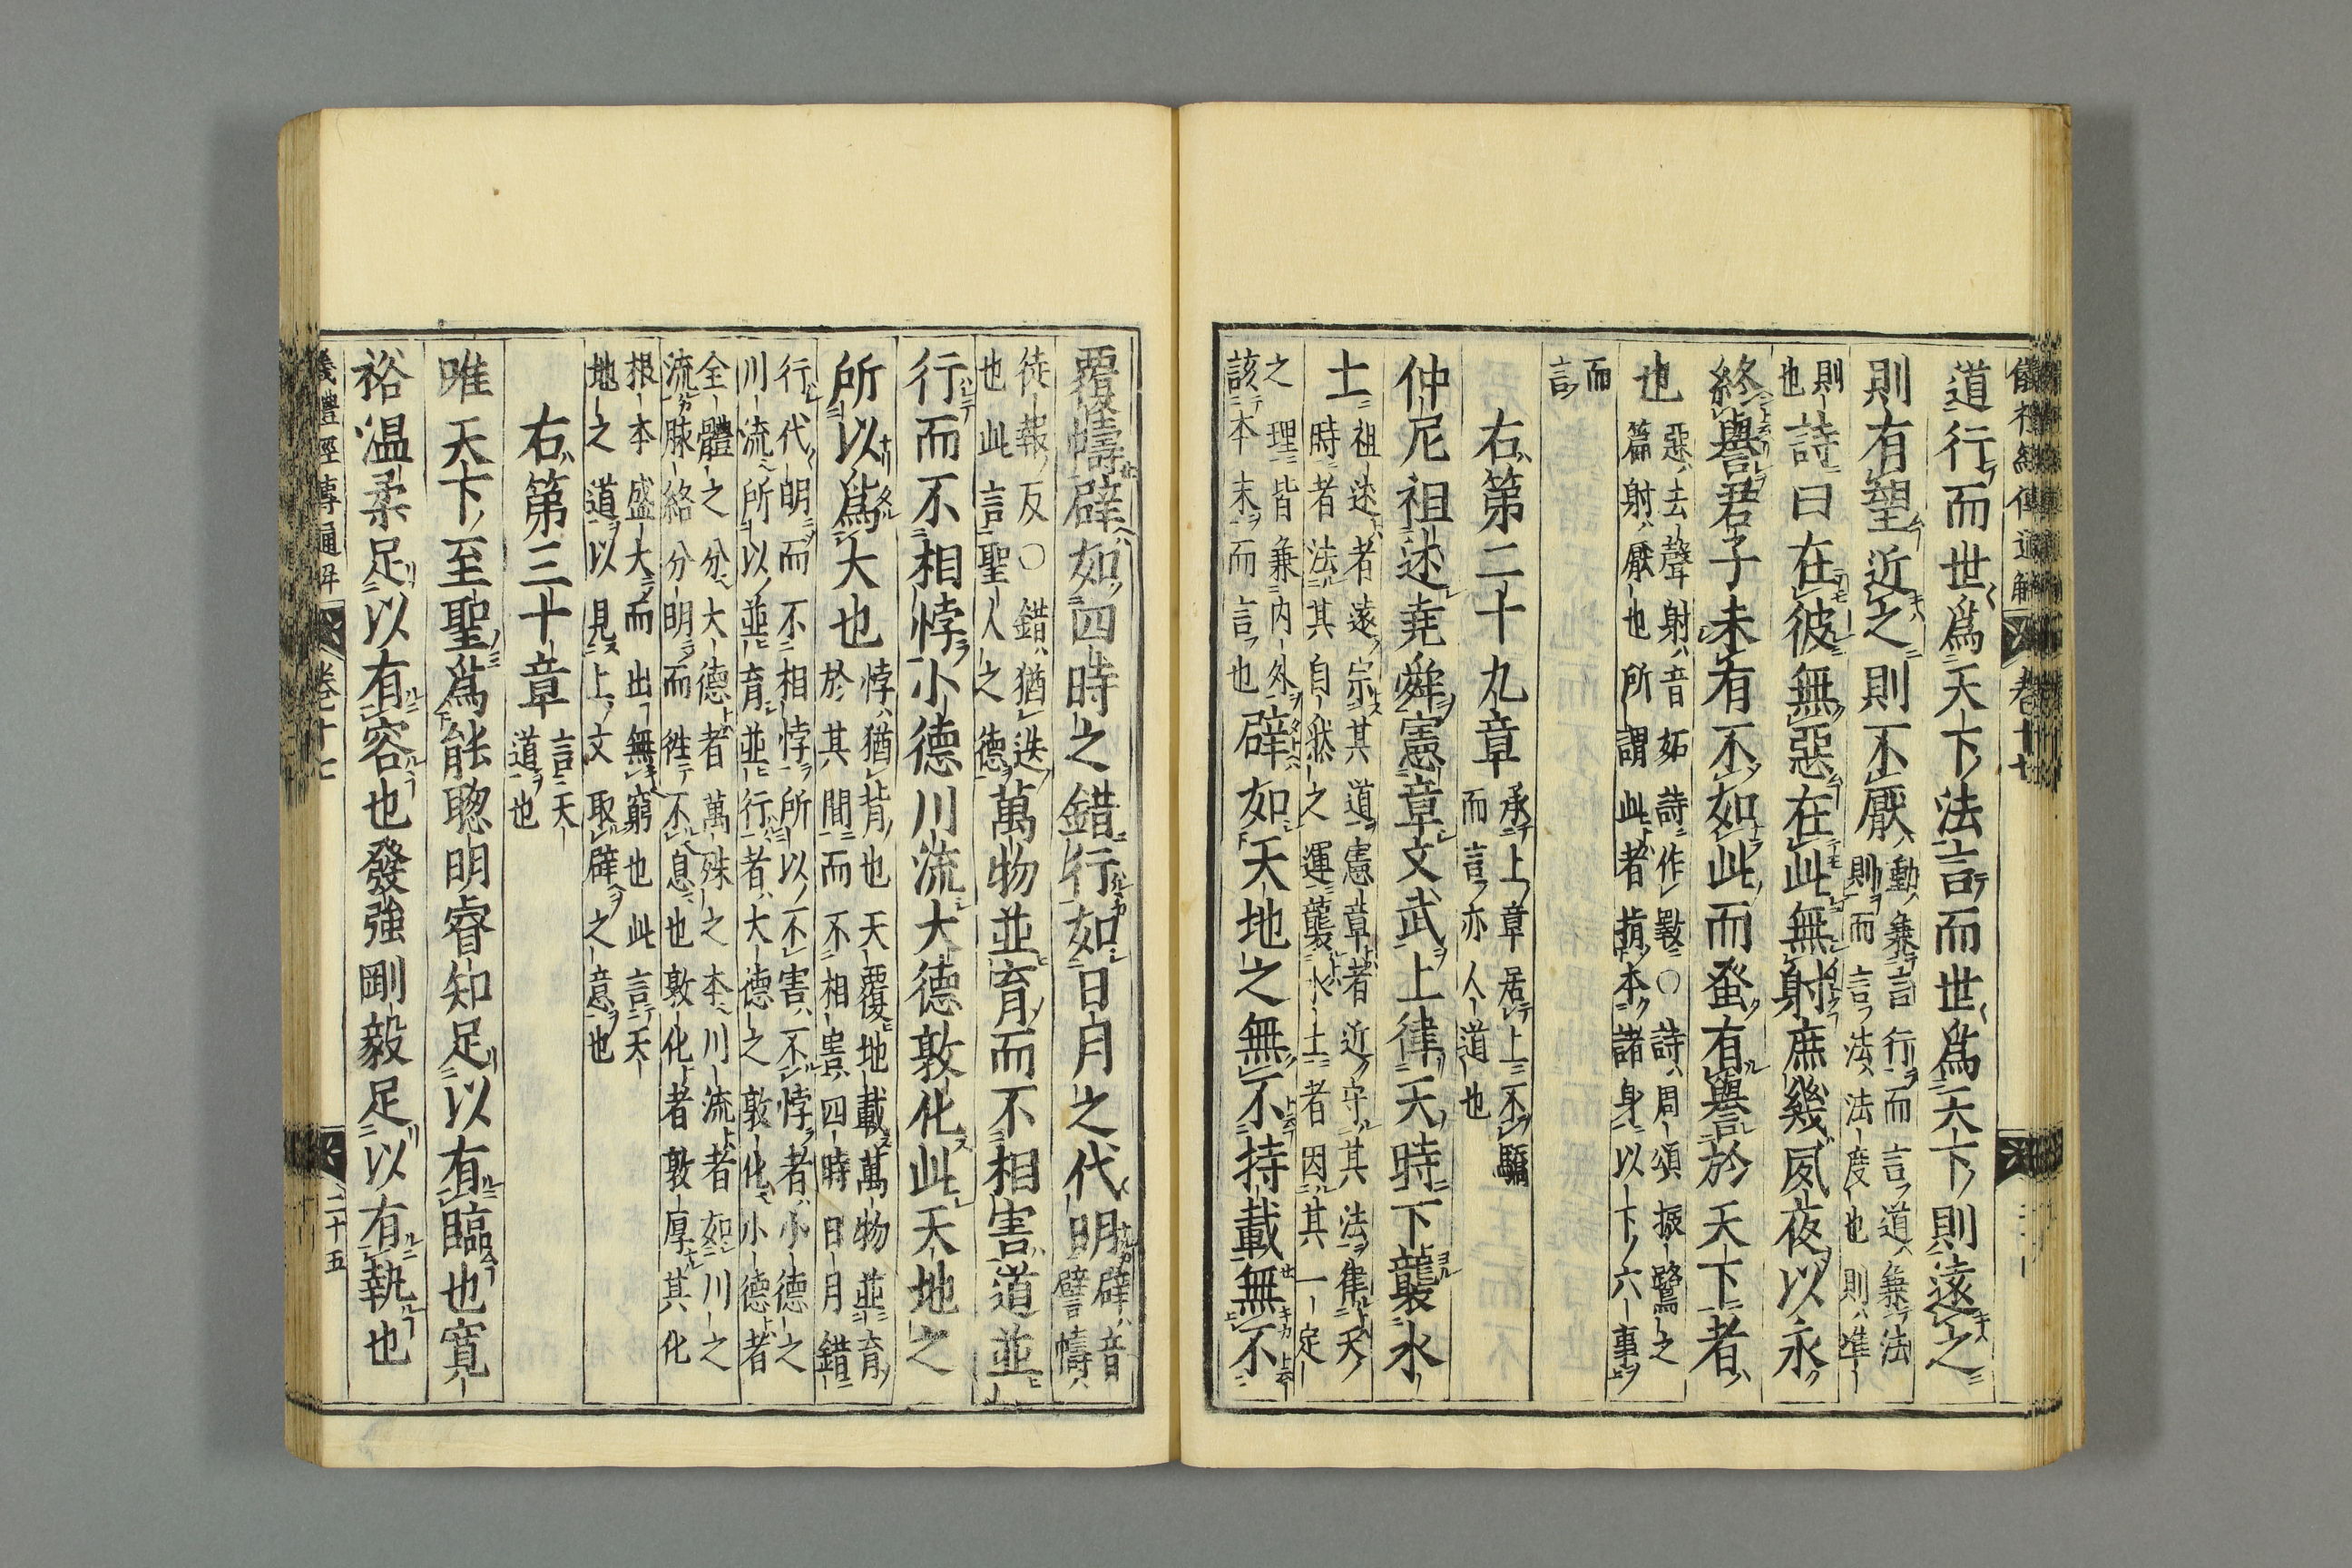 儀禮經傳通解 卷十七
道行而世爲天下法言而世爲天下則遠之
則有望近之則不厭
動兼言行而言道兼法
則而言法法度也則準
則
也
詩曰在彼無惡在此無射庶幾夙夜以永
終譽君子未有不如此而蚤有譽於天下者
也
惡去聲射音妬詩作斁○詩周頌振鷺之
篇射厭也所謂此者指本諸身以下六事
而
言
右第二十九章
承上章居上不驕
而言亦人道也
仲尼祖述堯舜憲章文武上律天時下襲水
土
祖述者遠宗其道憲章者近守其法律天
時者法其自然之運襲水土者因其一定
之理皆兼內外
該本末而言也
辟如天地之無不持載無不
覆幬辟如四時之錯行如日月之代明
辟音
譬幬
徒報反○錯猶迭
也此言聖人之德
萬物並育而不相害道並
行而不相悖小德川流大德敦化此天地之
所以爲大也
悖猶背也天覆地載萬物並育
於其間而不相害四時日月錯
行代明而不相悖所以不害不悖者小德之
川流所以並育並行者大德之敦化小德者
全體之分大德者萬殊之本川流者如川之
流脉絡分明而徃不息也敦化者敦厚其化
根本盛大而出無窮也此言天
地之道以見上文取辟之意也
右第三十章
言天
道也
唯天下至聖爲能聦明睿知足以有臨也寛
裕溫柔足以有容也發強剛毅足以有執也
儀禮經傳通解 卷十七 二十五